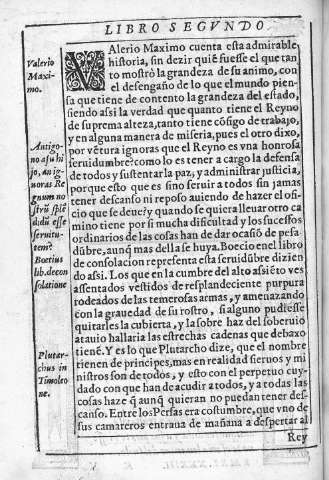 LIBRO SEGVNDO.
Valerio
Maxi-
mo.
Antigo-
no a su hi
jo, an ig-
noras Re
gnum no
strū splē
didū esse
seruitu-
tem?
Boetius
lib. de con
solatione
Plutar-
chus in
Timoleo
ne.
VAlerio Maximo cuenta esta admirable
historia, sin dezir quiē fuesse el que tan
to mostrò la grandeza de su animo, con
el desengaño de lo que el mundo pien-
sa que tiene de contento la grandeza del estado,
siendo assi la verdad que quanto tiene el Reyno
de suprema alteza, tanto tiene cōsigo de trabajo,
y en alguna manera de miseria, pues el otro dixo,
por vētura ignoras que el Reyno es vna honrosa
seruidumbre? como lo es tener a cargo la defensa
de todos y sustentar la paz, y administrar justicia,
porque esto que es sino seruir a todos sin jamas
tener descanso ni reposo auiendo de hazer el ofi-
cio que se deue? y quando se quiera lleuar otro ca
mino tiene por si mucha dificultad y los sucessos
ordinarios de las cosas han de dar ocasiō de pesa-
dūbre, aunq̃ mas della se huya. Boecio en el libro
de consolacion representa esta seruidūbre dizien
do assi. Los que en la cumbre del alto assiēto ves
assentados vestidos de resplandeciente purpura
rodeados de las temerosas armas, y amenazando
con la grauedad de su rostro, si alguno pudiesse
quitarles la cubierta, y la sobre haz del soberuio
atauio hallaria las estrechas cadenas que debaxo
tienē. Y es lo que Plutarcho dize, que el nombre
tienen de principes, mas en realidad sieruos y mi
nistros son de todos, y esto con el perpetuo cuy-
dado con que han de acudir a todos, y a todas las
cosas haze q̃ aunq̃ quieran no puedan tener des-
canso. Entre los Persas era costumbre, que vno de
sus camareros entraua de mañana a despertar al
Rey